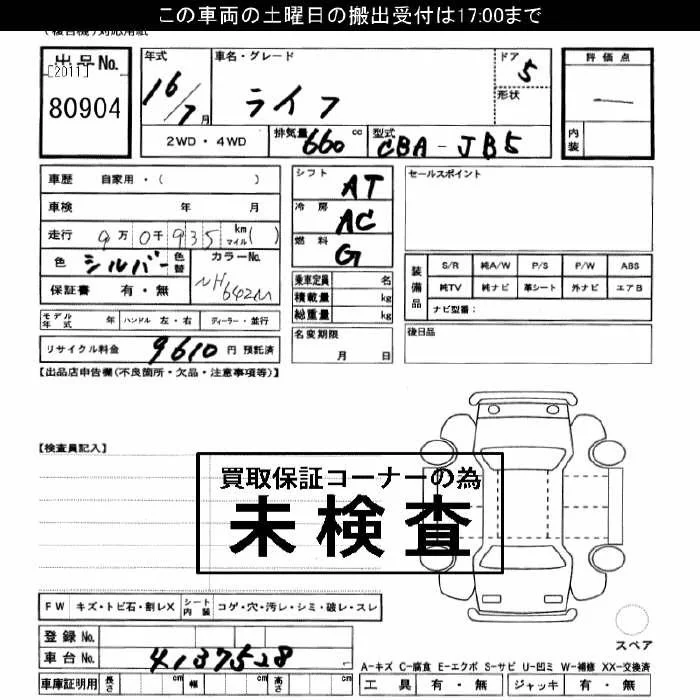 この車両の土曜日の搬出受付は17:00まで
出品No.
[2011]
80904
年式 16/7月
車名・グレード ライフ
ドア 5
形状
2WD・4WD
排気量 660 cc
型式 CBA-JB5
評価点 —
内装
車歴 自家用・( )
車検 年 月
走行 9万0千935 km マイル( )
色 シルバー 色替
カラーNo. NH642M
保証書 有・無
モデル年式 年 ハンドル 左・右 ディーラー・並行
リサイクル料金 9610 円 預託済
シフト AT
冷房 AC
燃料 G
乗車定員 名
積載量 kg
総重量 kg
名変期限 月 日
セールスポイント
装備品
S/R 純A/W P/S P/W ABS
純TV 純ナビ 革シート 外ナビ エアB
ナビ型番：
後日品
【出品店申告欄(不良箇所・欠品・注意事項等)】
【検査員記入】
買取保証コーナーの為
未検査
FW キズ・トビ石・割レX
シート内装 コゲ・穴・汚レ・シミ・破レ・スレ
登録No.
車台No. 4137528
車庫証明用 長さ cm 幅 cm 高さ cm
スペア
A-キズ C-腐食 E-エクボ S-サビ U-凹ミ W-補修 XX-交換済
工具 有・無 ジャッキ 有・無